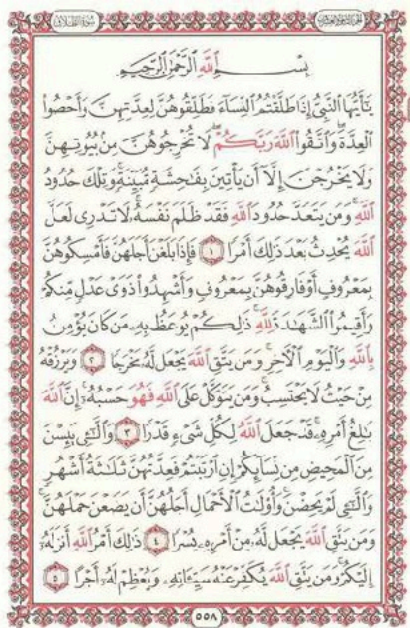 سورة الطلاق
الجزء الثامن والعشرون
بِسْمِ اللَّهِ الرَّحْمَٰنِ الرَّحِيمِ
يَٰٓأَيُّهَا ٱلنَّبِىُّ إِذَا طَلَّقْتُمُ ٱلنِّسَآءَ فَطَلِّقُوهُنَّ لِعِدَّتِهِنَّ وَأَحْصُوا۟
ٱلْعِدَّةَ ۖ وَٱتَّقُوا۟ ٱللَّهَ رَبَّكُمْ ۖ لَا تُخْرِجُوهُنَّ مِنۢ بُيُوتِهِنَّ
وَلَا يَخْرُجْنَ إِلَّآ أَن يَأْتِينَ بِفَٰحِشَةٍ مُّبَيِّنَةٍ ۚ وَتِلْكَ حُدُودُ
ٱللَّهِ ۚ وَمَن يَتَعَدَّ حُدُودَ ٱللَّهِ فَقَدْ ظَلَمَ نَفْسَهُۥ ۚ لَا تَدْرِى لَعَلَّ
ٱللَّهَ يُحْدِثُ بَعْدَ ذَٰلِكَ أَمْرًا ١ فَإِذَا بَلَغْنَ أَجَلَهُنَّ فَأَمْسِكُوهُنَّ
بِمَعْرُوفٍ أَوْ فَارِقُوهُنَّ بِمَعْرُوفٍ وَأَشْهِدُوا۟ ذَوَىْ عَدْلٍ مِّنكُمْ
وَأَقِيمُوا۟ ٱلشَّهَٰدَةَ لِلَّهِ ۚ ذَٰلِكُمْ يُوعَظُ بِهِۦ مَن كَانَ يُؤْمِنُ
بِٱللَّهِ وَٱلْيَوْمِ ٱلْءَاخِرِ ۚ وَمَن يَتَّقِ ٱللَّهَ يَجْعَل لَّهُۥ مَخْرَجًا ٢ وَيَرْزُقْهُ
مِنْ حَيْثُ لَا يَحْتَسِبُ ۚ وَمَن يَتَوَكَّلْ عَلَى ٱللَّهِ فَهُوَ حَسْبُهُۥٓ ۚ إِنَّ ٱللَّهَ
بَٰلِغُ أَمْرِهِۦ ۚ قَدْ جَعَلَ ٱللَّهُ لِكُلِّ شَىْءٍ قَدْرًا ٣ وَٱلَّٰٓـِٔى يَئِسْنَ
مِنَ ٱلْمَحِيضِ مِن نِّسَآئِكُمْ إِنِ ٱرْتَبْتُمْ فَعِدَّتُهُنَّ ثَلَٰثَةُ أَشْهُرٍ
وَٱلَّٰٓـِٔى لَمْ يَحِضْنَ ۚ وَأُو۟لَٰتُ ٱلْأَحْمَالِ أَجَلُهُنَّ أَن يَضَعْنَ حَمْلَهُنَّ ۚ
وَمَن يَتَّقِ ٱللَّهَ يَجْعَل لَّهُۥ مِنْ أَمْرِهِۦ يُسْرًا ٤ ذَٰلِكَ أَمْرُ ٱللَّهِ أَنزَلَهُۥٓ
إِلَيْكُمْ ۚ وَمَن يَتَّقِ ٱللَّهَ يُكَفِّرْ عَنْهُ سَيِّـَٔاتِهِۦ وَيُعْظِمْ لَهُۥٓ أَجْرًا ٥
٥٥٨